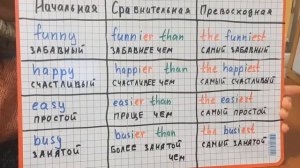 Начальная Сравнительная Превосходная
funny funnier than the funniest
забавный забавнее чем самый забавный
happy happier than the happiest
счастливый счастливее чем самый счастливый
easy easier than the easiest
простой проще чем самый простой
busy busier than the busiest
занятой более занятой самый занятой
чем